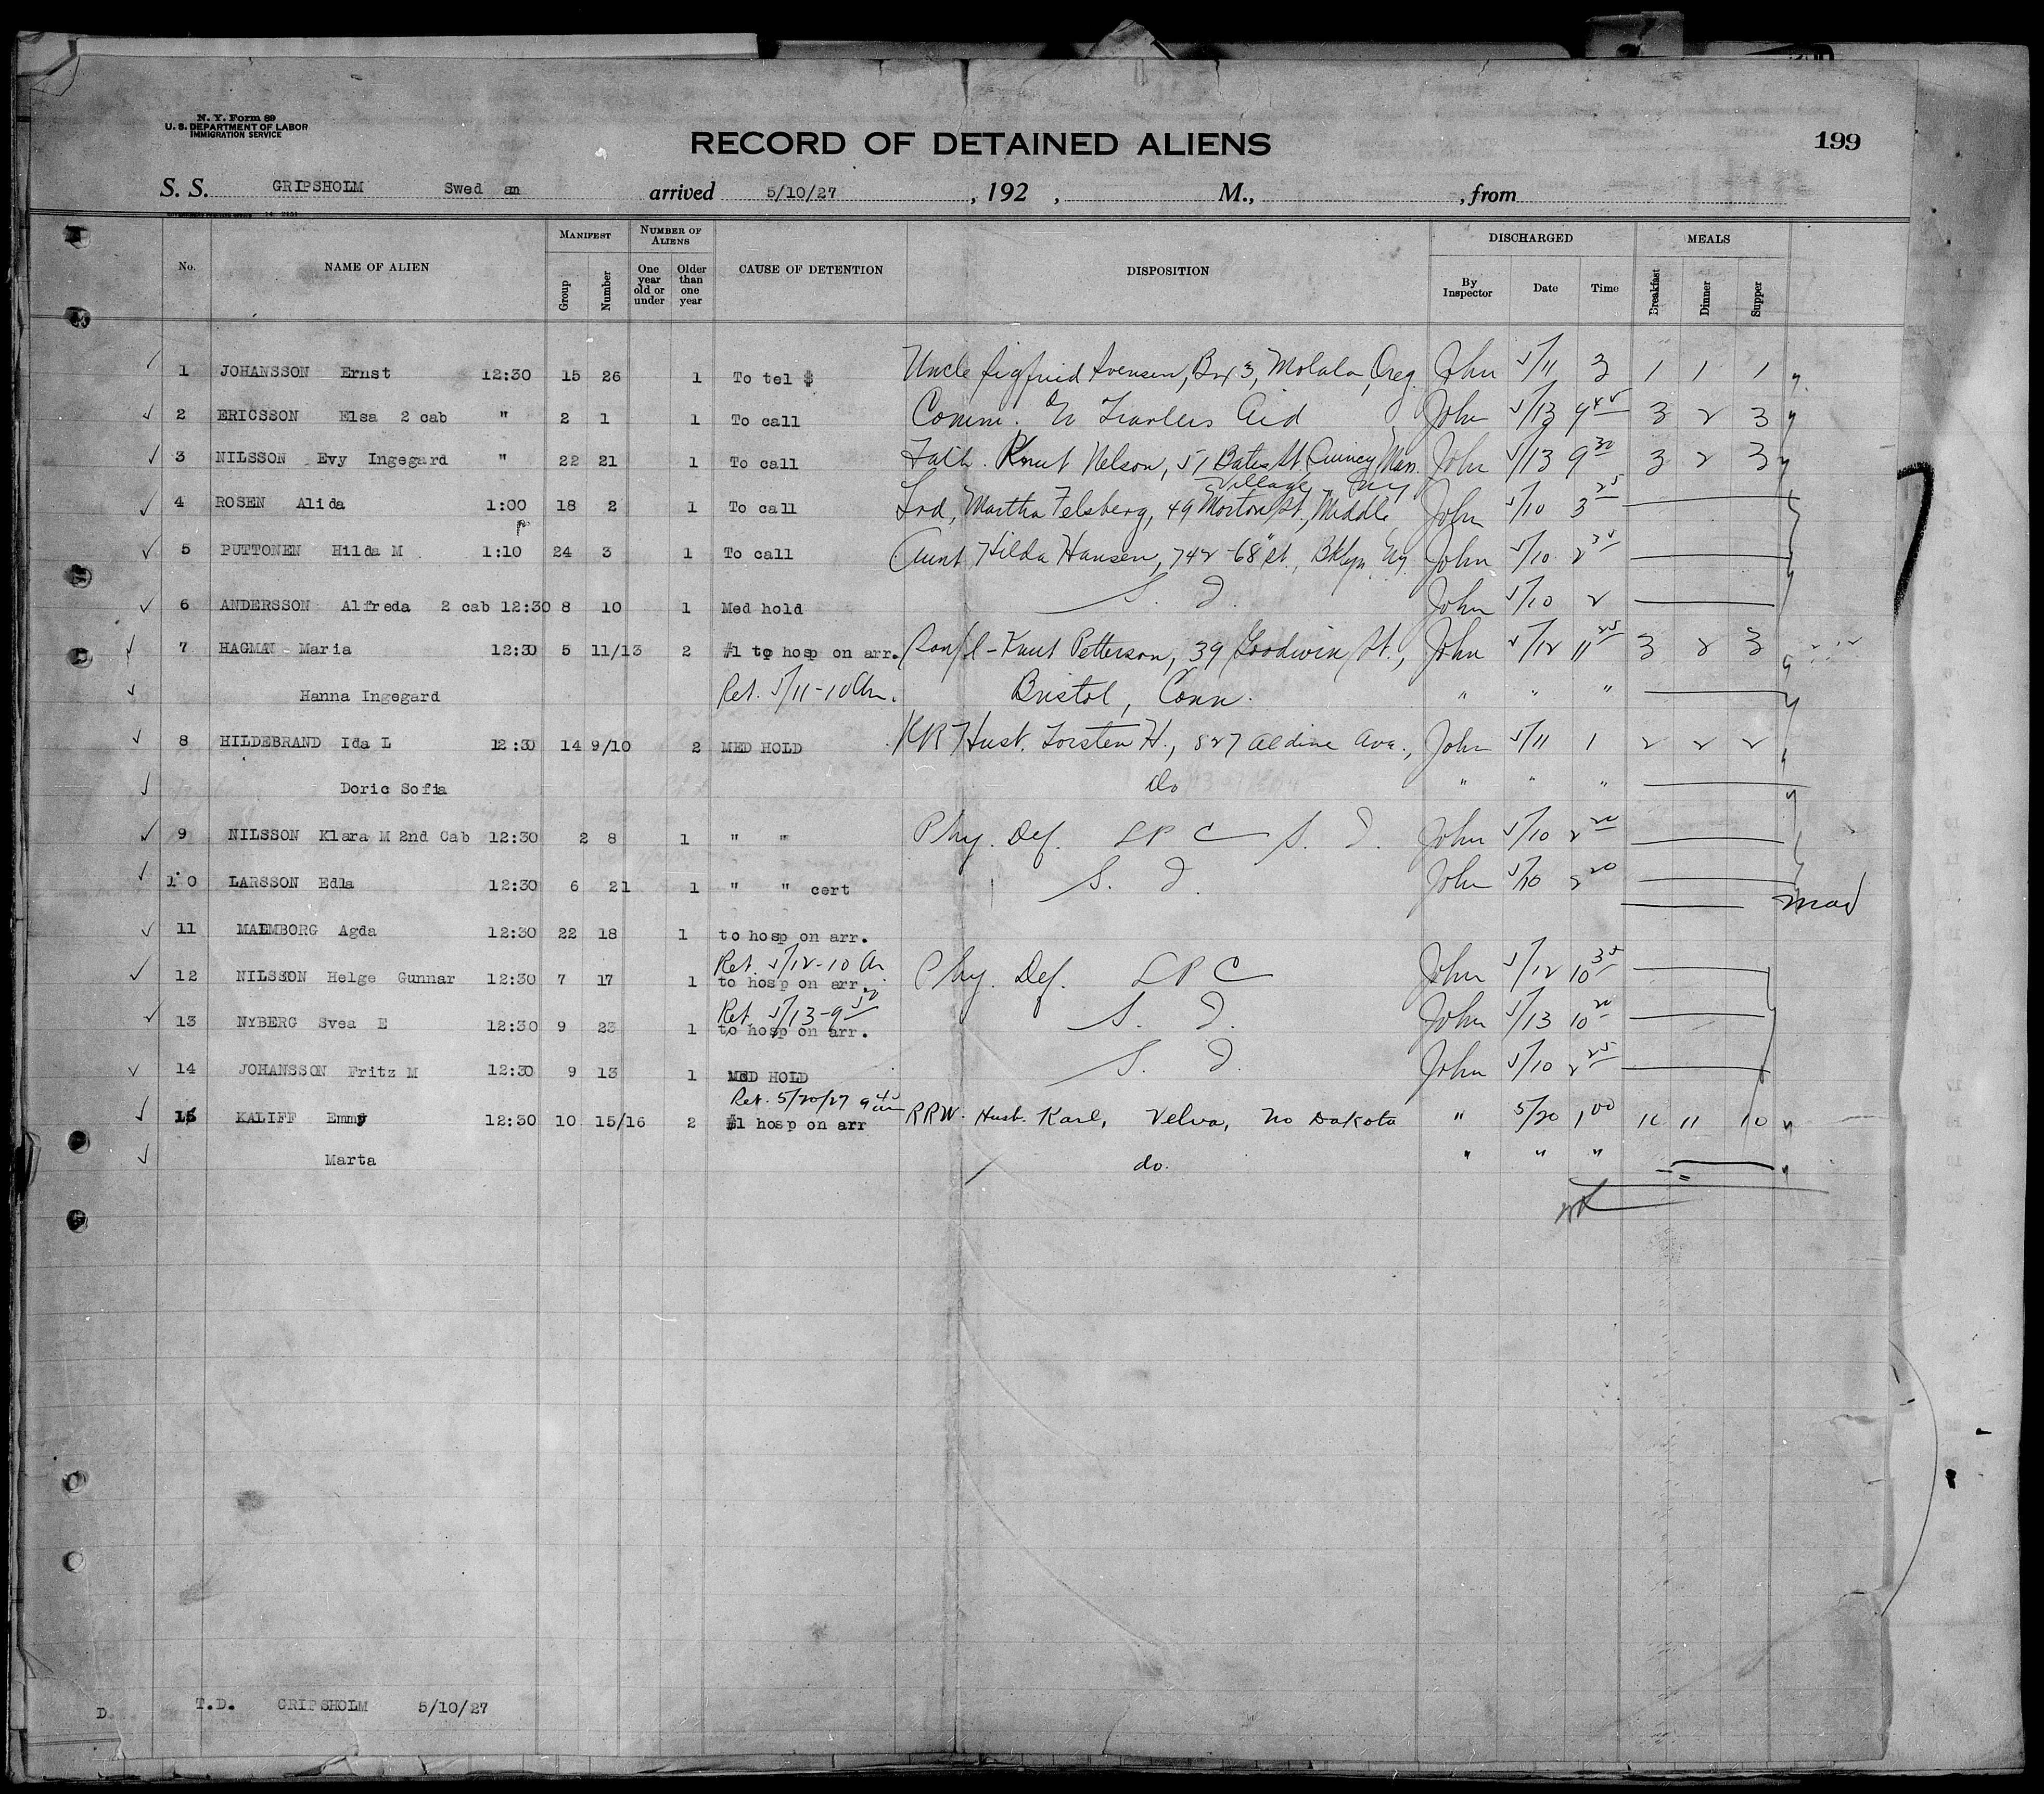 N. Y. Form 89
U. S. DEPARTMENT OF LABOR
IMMIGRATION SERVICE
RECORD OF DETAINED ALIENS
199
S. S. GRIPSHOLM Swed am arrived 5/10/27, 192 , M., , from
14 2151
No. NAME OF ALIEN MANIFEST Group Number NUMBER OF ALIENS One year old or under Older than one year CAUSE OF DETENTION DISPOSITION DISCHARGED By Inspector Date Time MEALS Breakfast Dinner Supper
1 JOHANSSON Ernst 12:30 15 26 1 To tel $ Uncle Sigfried Svensen, Box 3, Molala, Oreg. John 5/11 3 1 1 1
2 ERICSSON Elsa 2 cab " 2 1 1 To call Comm. to Travlers Aid John 5/13 9 45 3 2 3
3 NILSSON Evy Ingegard " 22 21 1 To call Fath. Knut Nelson, 51 Bates St. Quincy Mass. John 5/13 9 30 3 2 3
Village Ny
4 ROSEN Alida 1:00 18 2 1 To call Frd, Martha Felsberg, 49 Morton St., Middle John 5/10 3 25
5 PUTTONEN Hilda M 1:10 24 3 1 To call Aunt Hilda Hansen, 742-68" St., Bklyn, Ny. John 5/10 2 35
6 ANDERSSON Alfreda 2 cab 12:30 8 10 1 Med hold S. I. John 5/10 2
7 HAGMAN Maria 12:30 5 11/13 2 #1 to hosp on arr. Son/l - Knut Petterson, 39 Goodwin St., John 5/12 11 25 3 2 3
Hanna Ingegard Ret. 5/11-10 Am. Bristol, Conn. " " "
8 HILDEBRAND Ida L 12:30 14 9/10 2 MED HOLD RR Hust. Torsten H., 827 Aldine Ave., John 5/11 1 2 2 2
Doric Sofia do " " "
9 NILSSON Klara M 2nd Cab 12:30 2 8 1 " " Phy. Def. L P C S. I. John 5/10 2 20
10 LARSSON Edla 12:30 6 21 1 " " cert S. I. John 5/10 2 20
11 MALMBORG Agda 12:30 22 18 1 to hosp on arr.
Ret 5/12-10 Am
12 NILSSON Helge Gunnar 12:30 7 17 1 to hosp on arr. Phy. Def. L P C John 5/12 10 35
Ret. 5/13-9 50
13 NYBERG Svea E 12:30 9 23 1 to hosp on arr. S. I. John 5/13 10 20
14 JOHANSSON Fritz M 12:30 9 13 1 MED HOLD S. I. John 5/10 2 25
Ret. 5/20/27 9 40 am
15 KALIFF Emmy 12:30 10 15/16 2 #1 hosp on arr RRW. Hust. Karl, Velva, No Dakota " 5/20 1 00 11 11 10
Marta do. " " "
D. T.D. GRIPSHOLM 5/10/27